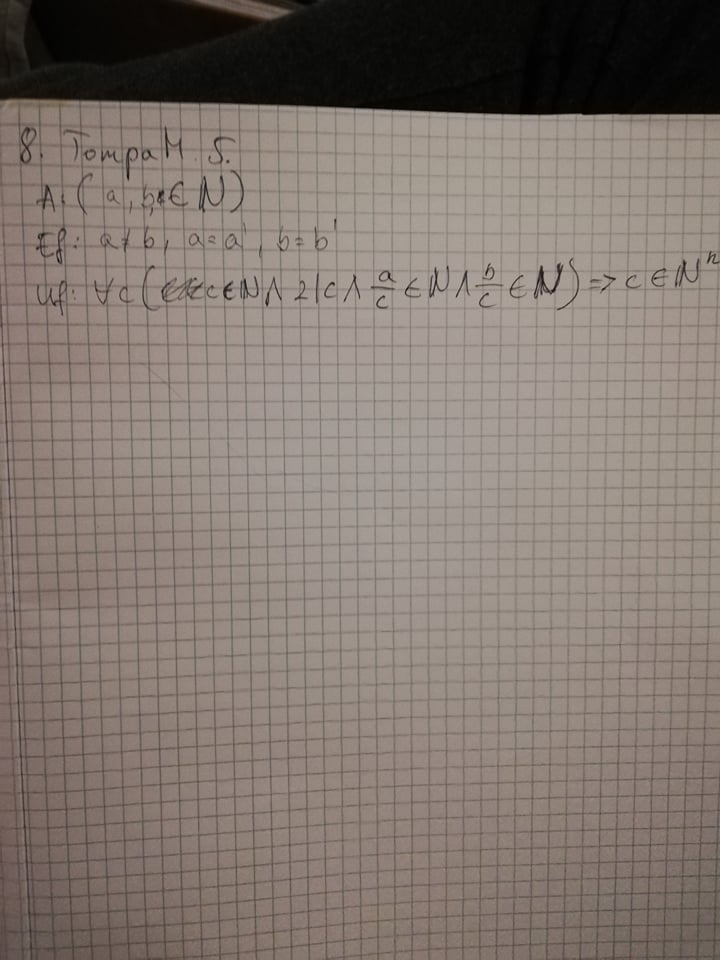 8. Tompa M. S.
A: (a, b ∈ N)
Ef: a ≠ b, a = a', b = b'
Uf: ∀c (c ∈ N ∧ 2|c ∧ a/c ∈ N ∧ b/c ∈ N) => c ∈ N^n